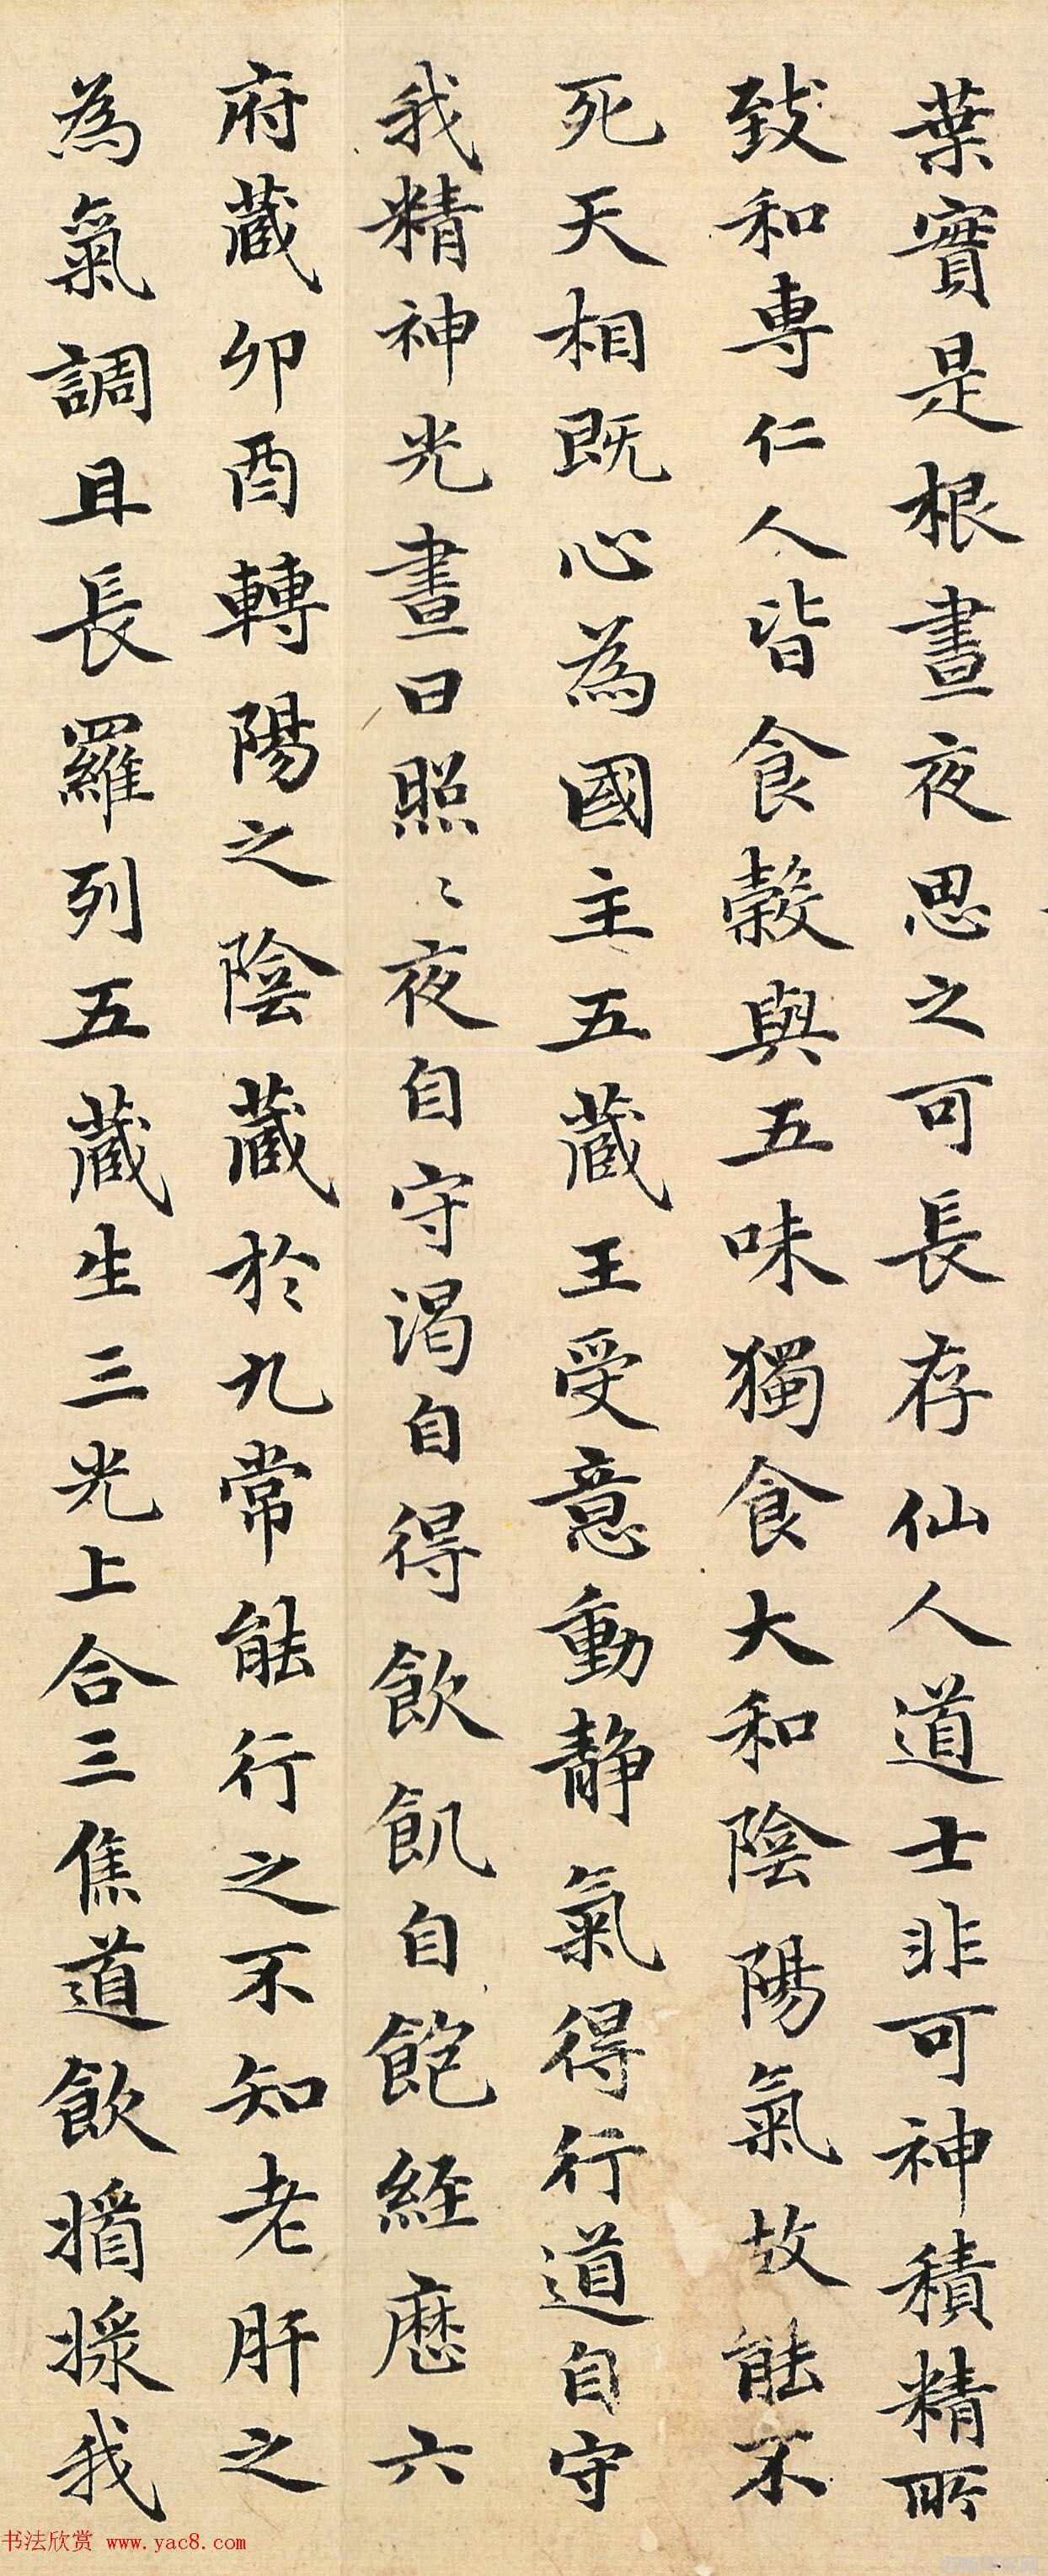 葉實是根晝夜思之可長存仙人道士非可神積精所
致和専仁人皆食穀與五味獨食大和陰陽氣故能不
死天相既心為國主五蔵王受意動静氣得行道自守
我精神光晝日照〻夜自守渴自得飲飢自飽経歴六
府蔵卯酉轉陽之陰蔵於九常能行之不知老肝之
為氣調且長羅列五蔵生三光上合三焦道飲我
书法欣赏 www.yac8.com